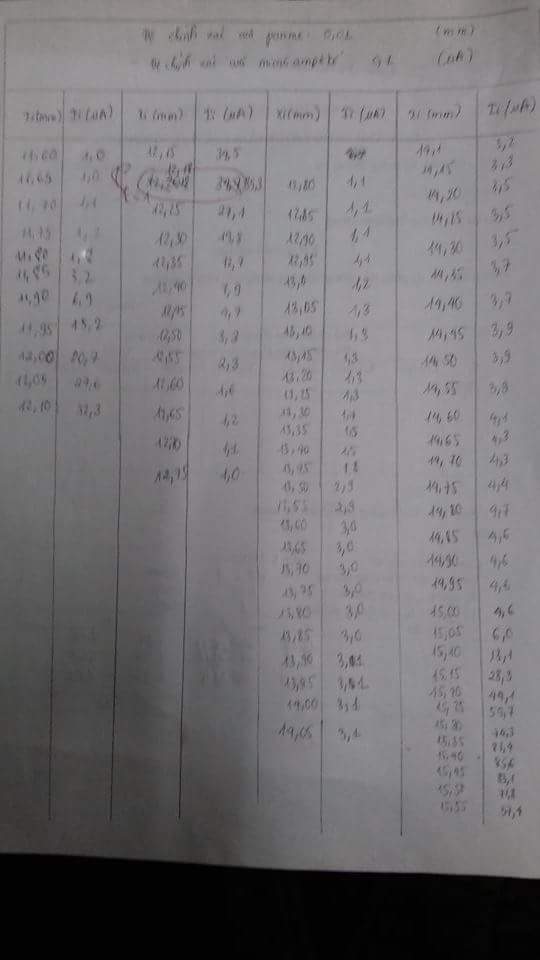 Độ chính xác của panme: 0,01 (mm)
Độ chính xác của microampekế: 0,1 (μA)
xi(mm) Ii(μA) xi(mm) Ii(μA) xi(mm) Ii(μA) xi(mm) Ii(μA)
11,60 1,0 12,15 34,5 14,1 3,2
11,65 1,0 12,80 1,1 14,15 3,3
11,70 1,1 12,25 27,1 12,85 1,1 14,20 3,5
11,75 12,30 19,8 12,90 1,1 14,25 3,5
11,80 12,35 12,7 12,95 1,1 14,30 3,5
11,85 3,2 12,40 7,9 13,0 1,2 14,35 3,7
11,90 6,9 12,45 4,7 13,05 1,3 14,40 3,7
11,95 13,2 12,50 3,3 13,10 1,3 14,45 3,9
12,00 20,7 12,55 2,3 13,15 1,3 14,50 3,9
12,05 27,6 12,60 1,6 13,20 1,3 14,55 3,9
12,10 32,3 12,65 1,2 13,25 1,3 14,60 4,1
12,70 1,1 13,30 14,65 4,3
12,75 1,0 13,35 1,5 14,70 4,3
13,40 1,5 14,75 4,4
13,45 1,8 14,80 4,7
13,50 2,9 14,85 4,6
13,55 2,9 14,90 4,6
13,60 3,0 14,95 4,6
13,65 3,0 15,00 4,6
13,70 3,0 15,05 6,0
13,75 3,0 15,10 13,1
13,80 3,0 15,15 28,3
13,85 3,0 15,20 44,1
13,90 3,1 15,25 59,7
13,95 3,1 15,30 74,3
14,00 3,1 15,35 83,4
14,05 3,1 15,40 85,6
15,45 83,1
15,50 71,8
15,55 57,4